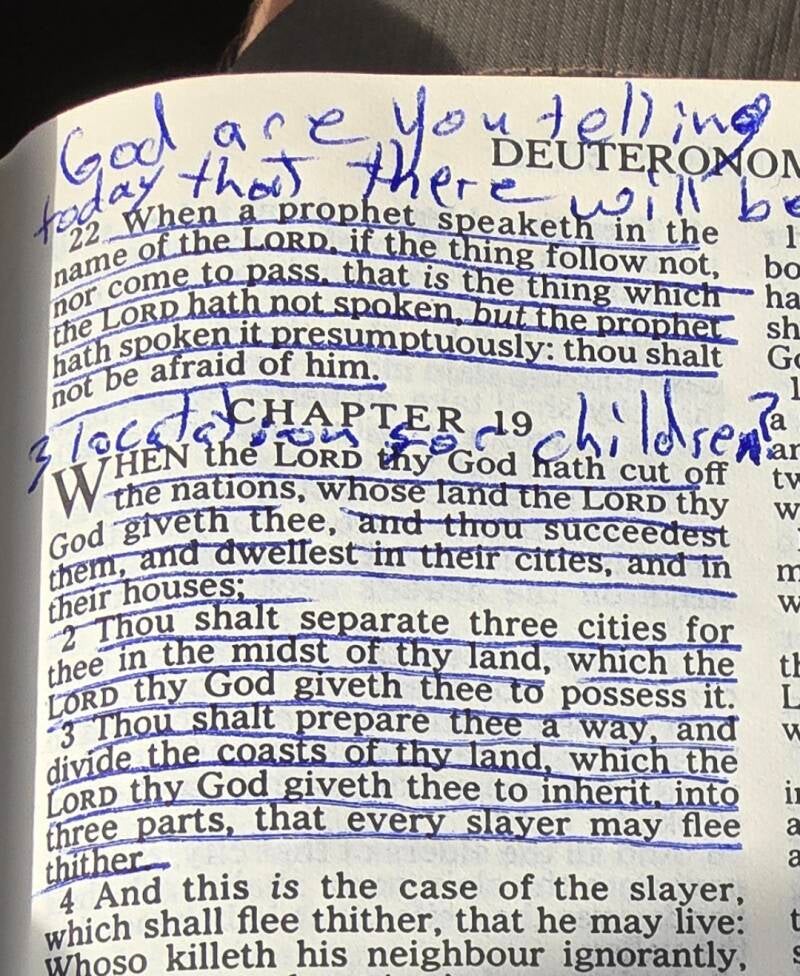 God are you telling
DEUTERONOM
today that there will be
22 When a prophet speaketh in the
name of the LORD, if the thing follow not,
nor come to pass, that is the thing which
the LORD hath not spoken, but the prophet
hath spoken it presumptuously: thou shalt
not be afraid of him.
CHAPTER 19
3 locatation for children?
WHEN the LORD thy God hath cut off
the nations, whose land the LORD thy
God giveth thee, and thou succeedest
them, and dwellest in their cities, and in
their houses;
2 Thou shalt separate three cities for
thee in the midst of thy land, which the
LORD thy God giveth thee to possess it.
3 Thou shalt prepare thee a way, and
divide the coasts of thy land, which the
LORD thy God giveth thee to inherit, into
three parts, that every slayer may flee
thither.
4 And this is the case of the slayer,
which shall flee thither, that he may live:
Whoso killeth his neighbour ignorantly,
1
bo
ha
sh
Go
1
a
ar
tv
w
m
w
th
L
w
in
a
a
t
s